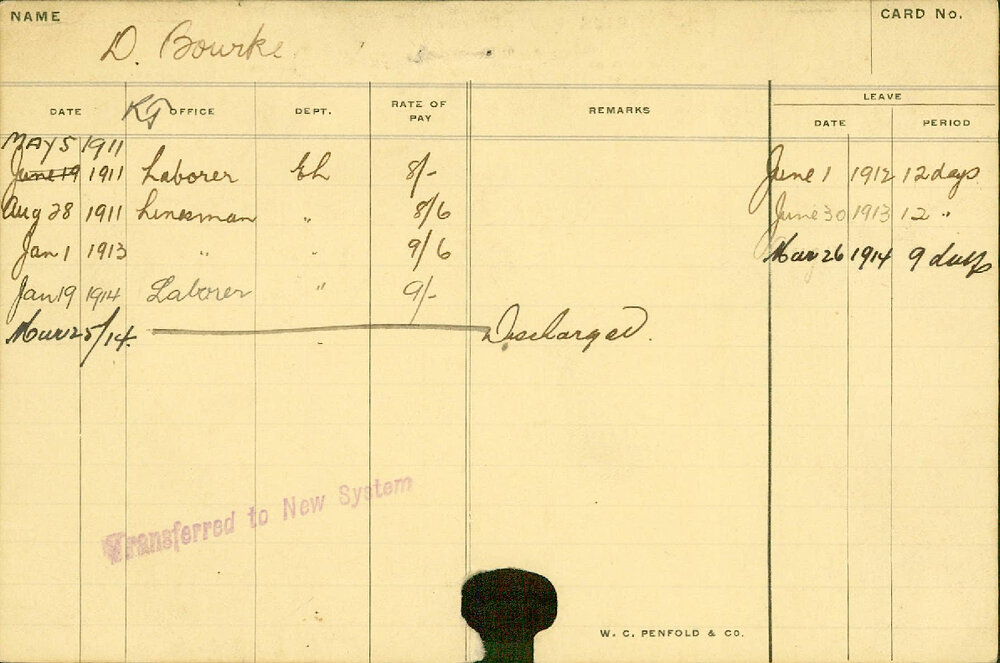 NAME
CARD No.
D. Bourke
LEAVE
DATE OFFICE DEPT. RATE OF PAY REMARKS DATE PERIOD
MAY 5 1911
June 19 1911 Laborer EL 8/- June 1 1912 12 days
Aug 28 1911 Linesman " 8/6 June 30 1913 12 "
Jan 1 1913 " " 9/6 Mar 26 1914 9 days
Jan 19 1914 Laborer " 9/-
Mar 25/14 Discharged.
Transferred to New System
W. C. PENFOLD & CO.